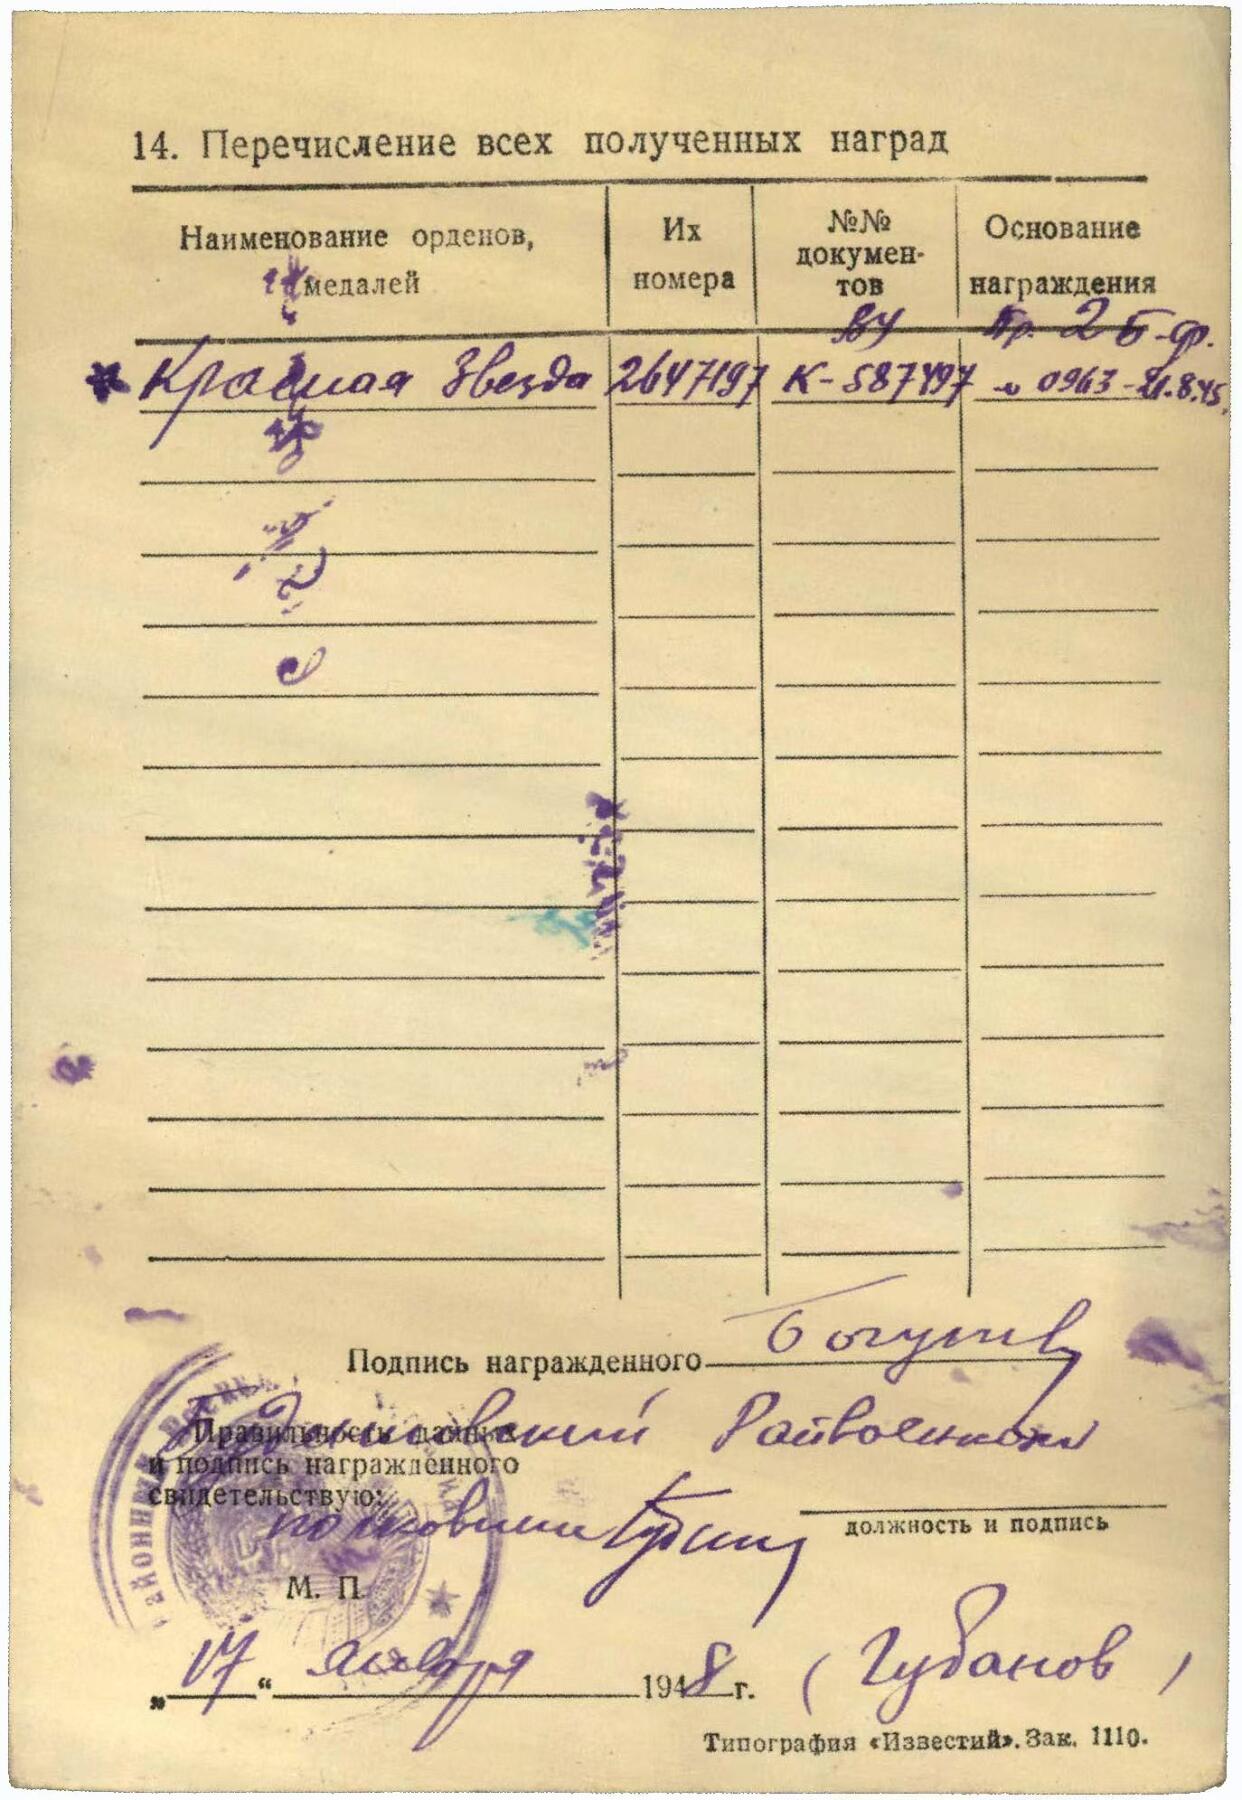 14. Перечисление всех полученных наград
Наименование орденов, медалей
Их номера
№№ документов
Основание награждения
ВУ
Пр. 2 Б.-ф.
Красная Звезда 2647197 К-587497 № 0963 - 21.8.45.
Подпись награжденного
Правильность данных
и подпись награжденного
свидетельствую:
Райвоенком
полковник
должность и подпись
М. П.
„17“ января 1948 г. (Губанов)
Типография «Известий». Зак. 1110.